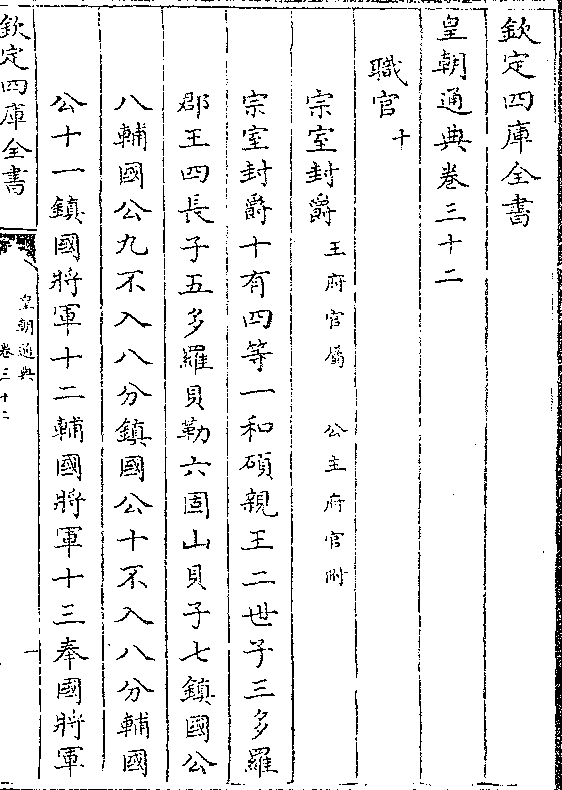 欽定四庫全書
皇朝通典卷三十二
職官十
宗室封爵 王府官屬 公主府官附
宗室封爵十有四等一和碩親王二世子三多羅
郡王四長子五多羅貝勒六固山貝子七鎮國公
八輔國公九不入八分鎮國公十不入八分輔國
公十一鎮國將軍十二輔國將軍十三奉國將軍
欽定四庫全書
皇朝通典
卷三十二
一